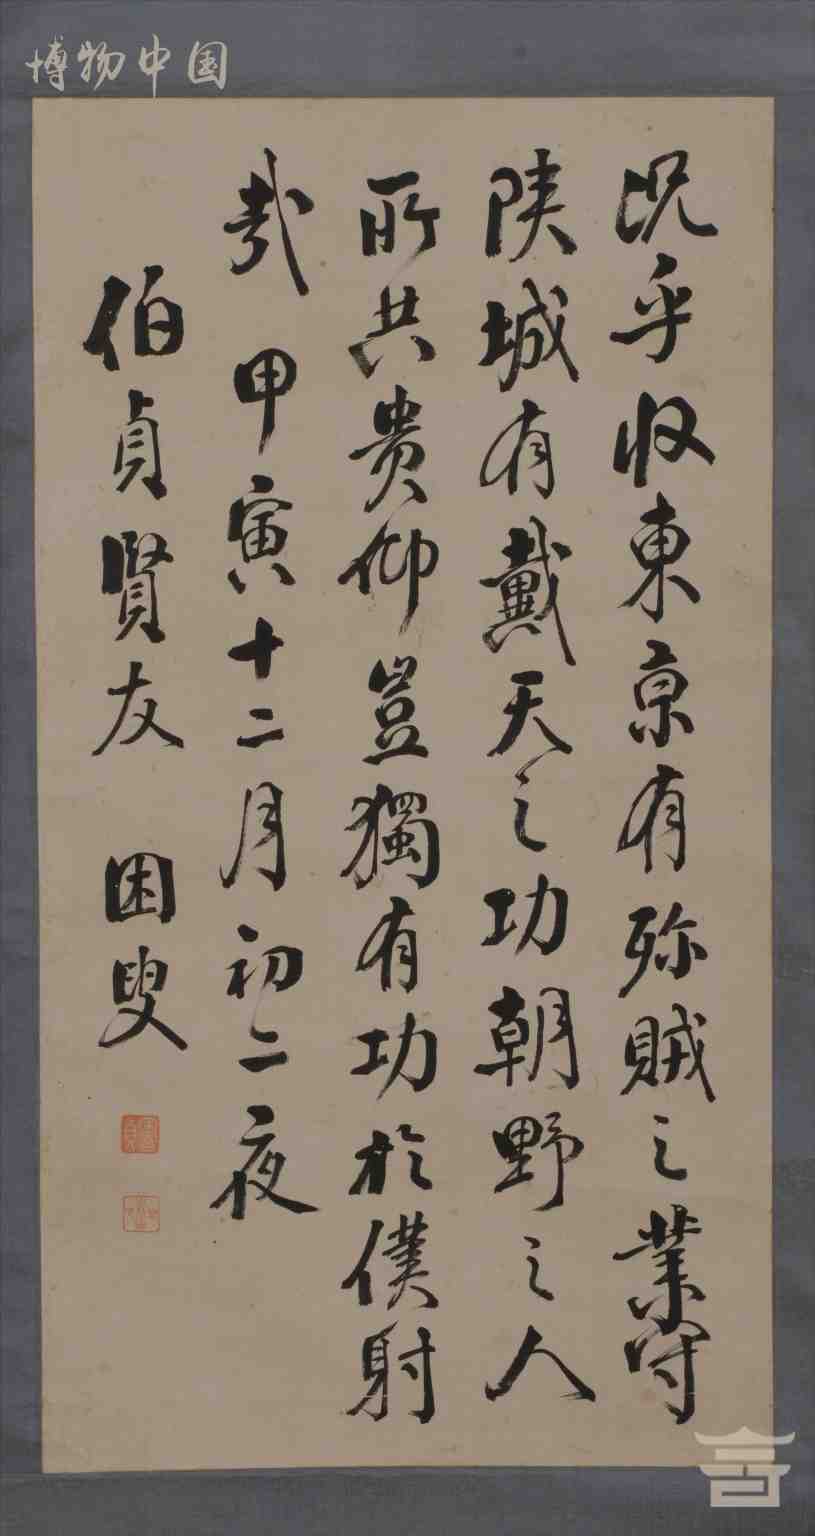 博物中国
况乎收東京有殄賊之業守
陕城有戴天之功朝野之人
所共贵仰豈獨有功於僕射
哉 甲寅十二月初二夜
伯貞賢友 困叟